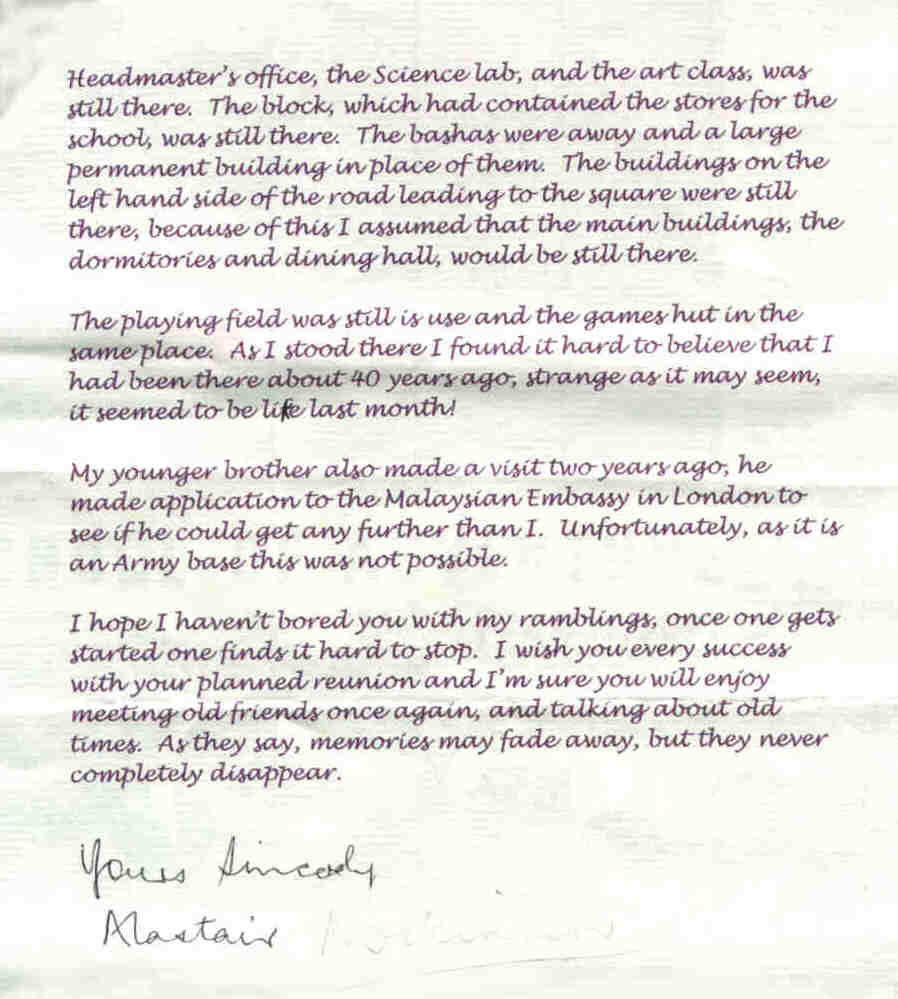 Headmaster's office, the Science lab, and the art class, was
still there. The block, which had contained the stores for the
school, was still there. The bashas were away and a large
permanent building in place of them. The buildings on the
left hand side of the road leading to the square were still
there, because of this I assumed that the main buildings, the
dormitories and dining hall, would be still there.
The playing field was still is use and the games hut in the
same place. As I stood there I found it hard to believe that I
had been there about 40 years ago, strange as it may seem,
it seemed to be like last month!
My younger brother also made a visit two years ago, he
made application to the Malaysian Embassy in London to
see if he could get any further than I. Unfortunately, as it is
an Army base this was not possible.
I hope I haven't bored you with my ramblings, once one gets
started one finds it hard to stop. I wish you every success
with your planned reunion and I'm sure you will enjoy
meeting old friends once again, and talking about old
times. As they say, memories may fade away, but they never
completely disappear.
Yours Sincerely
Alastair